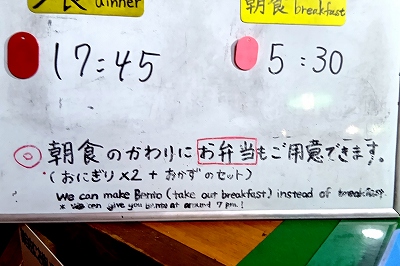 夕食 dinner
朝食 breakfast
17:45
5:30
◎ 朝食のかわりにお弁当もご用意できます。
(おにぎり×2 + おかずのセット)
We can make Bento (take out breakfast) instead of breakfast.
* We can give you bento at around 7 pm!